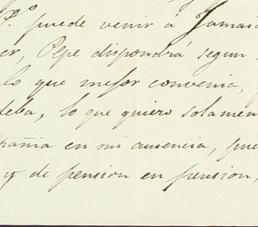 P.º puede venir á Jamai
er, Pepe dispondrá segun
lo que mejor convenia,
deba, lo que quiero solamen
pañia en mi ausencia, pue
y de pension en pension,